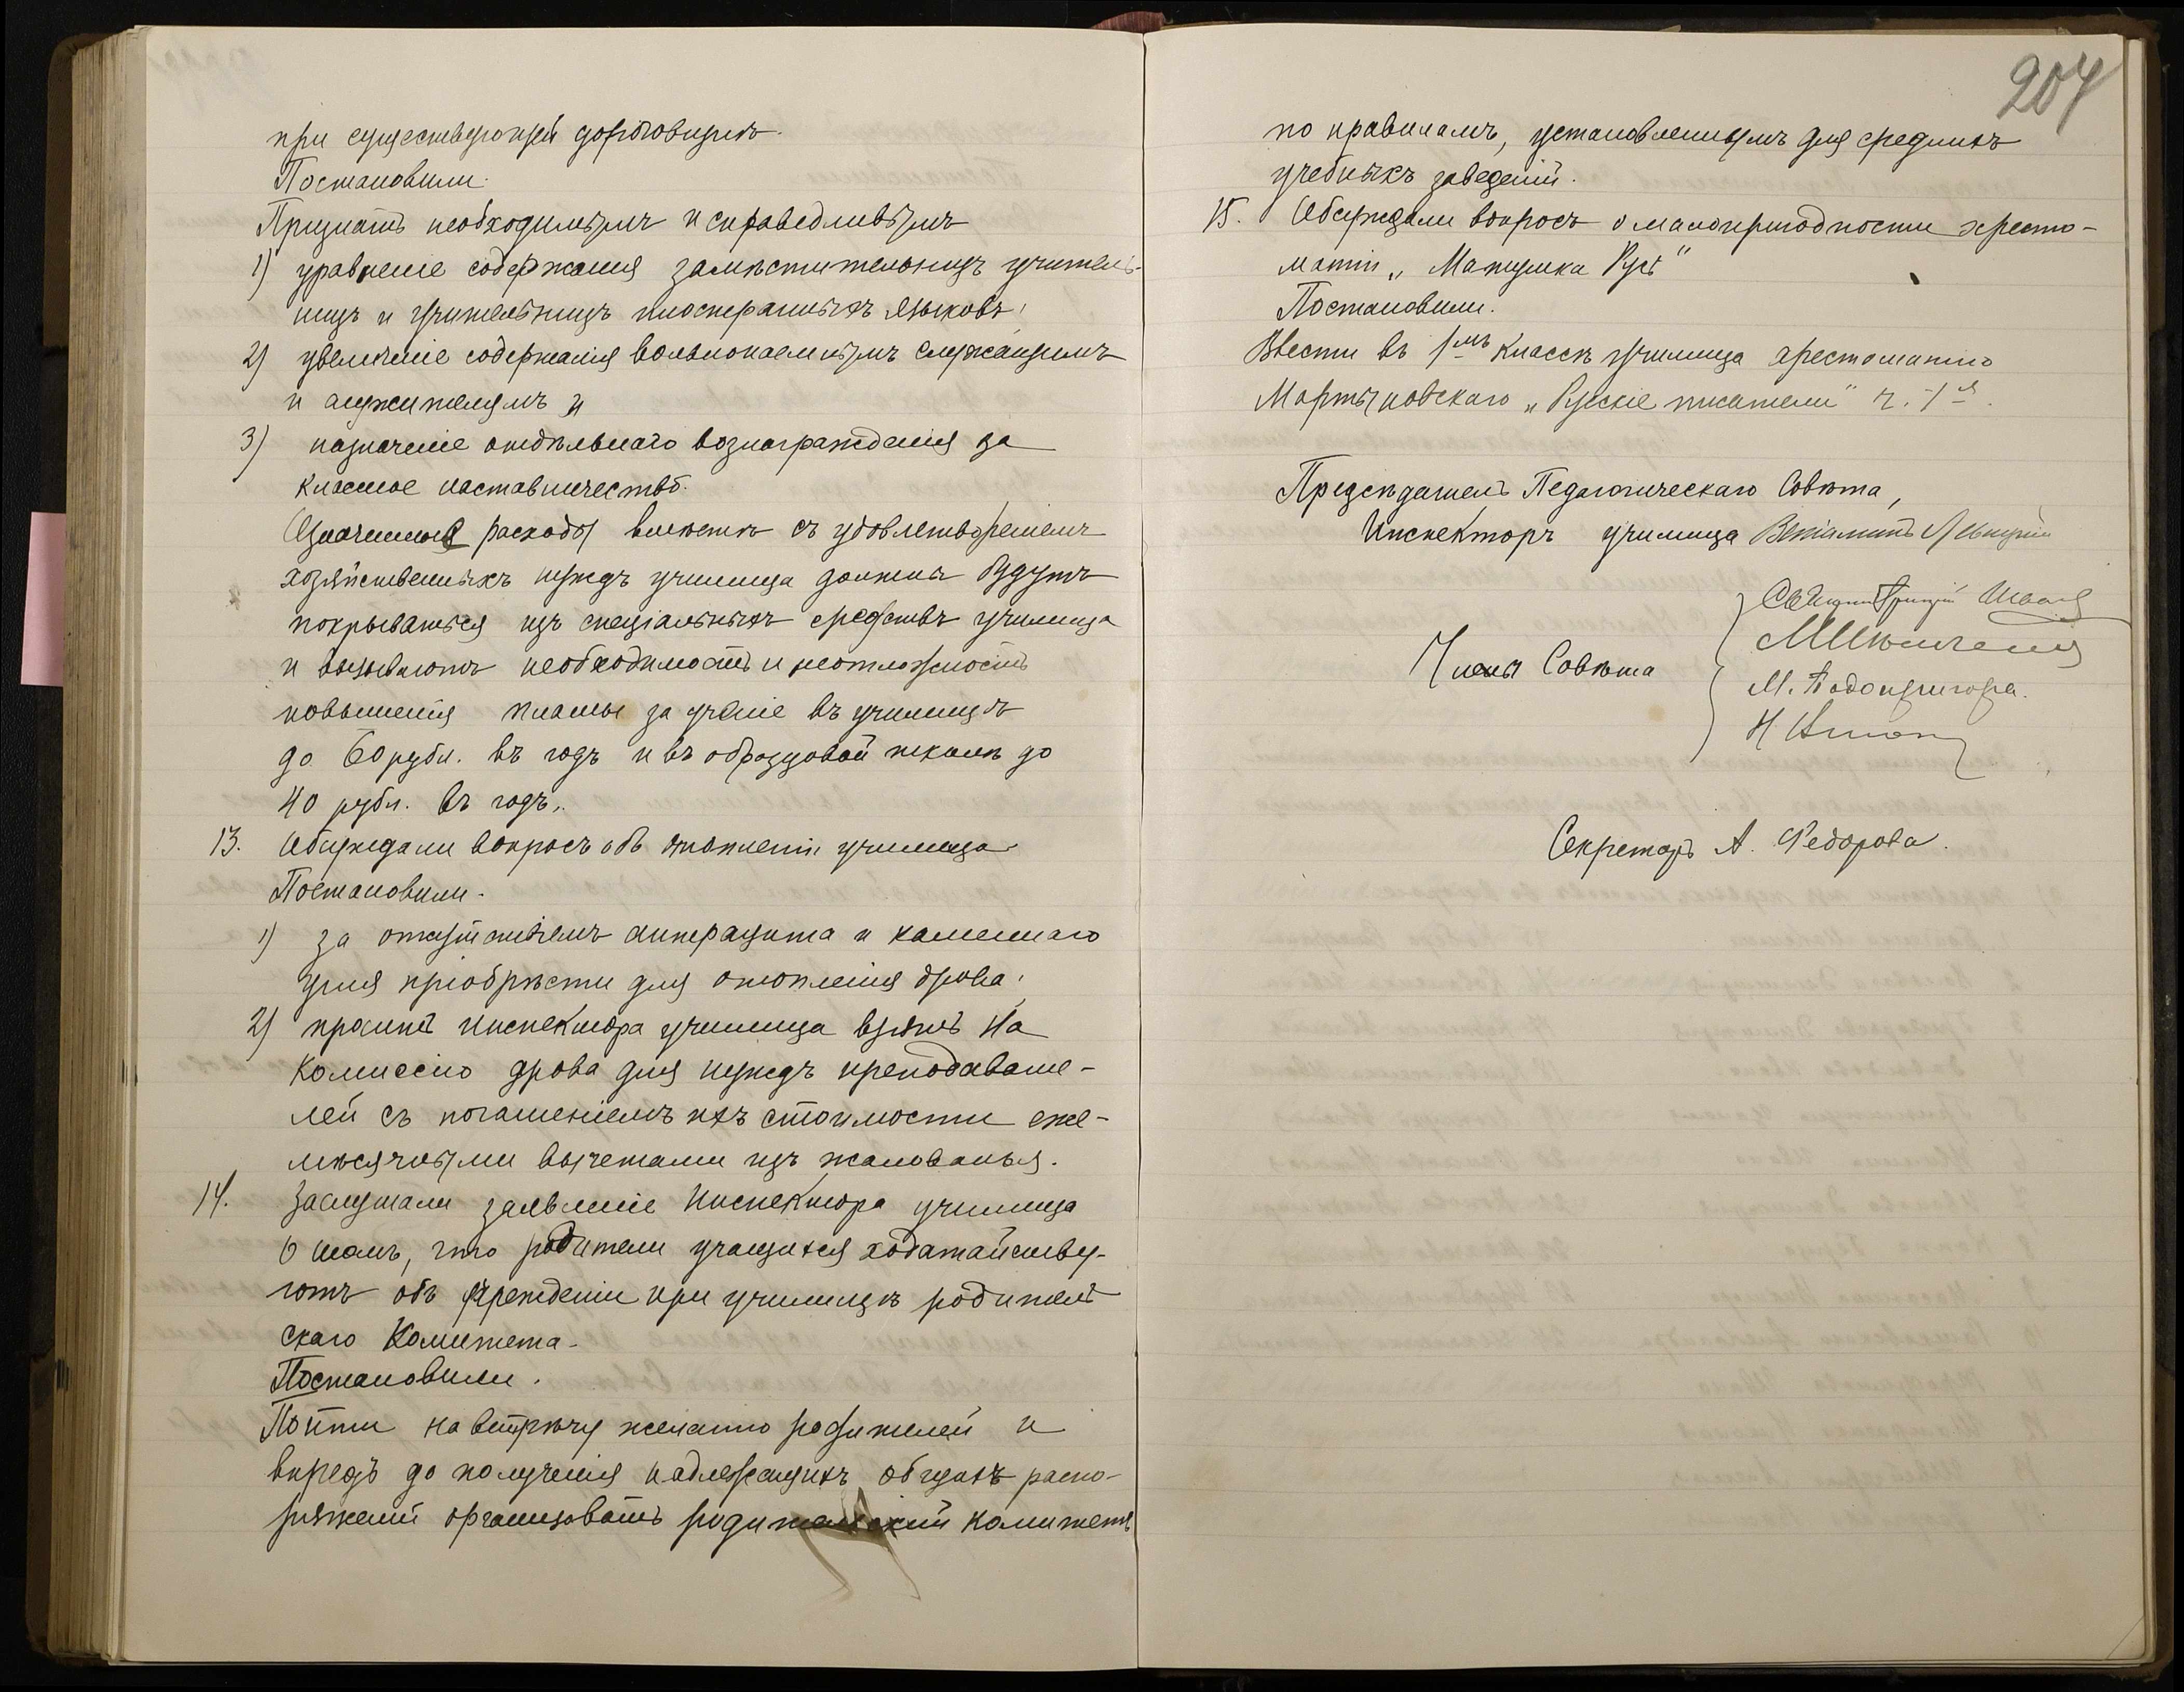 при существующей дороговизнѣ.
Постановили.
Признать необходимымъ и справедливымъ
1) уравненіе содержанія замѣстительницъ учитель-
ницъ и учительницъ иностранныхъ языковъ;
2) увеличеніе содержанія вольнонаемнымъ служащимъ
и служителямъ и
3) назначеніе отдѣльнаго вознагражденія за
классное наставничество.
Означенные расходы вмѣстѣ съ удовлетвореніемъ
хозяйственныхъ нуждъ училища должны будутъ
покрываться изъ спеціальныхъ средствъ училища
и вызываютъ необходимость и неотложность
повышенія платы за ученіе въ училищѣ
до 60 рубл. въ годъ и въ образцовой школѣ до
40 рубл. въ годъ.
13. Обсуждали вопросъ объ отопленіи училища.
Постановили.
1) за отсутствіемъ антрацита и каменнаго
угля пріобрѣсти для отопленія дрова;
2) просить Инспектора училища взять на
комиссію дрова для нуждъ преподавате-
лей съ погашеніемъ ихъ стоимости еже-
мѣсячными вычетами изъ жалованья.
14. Заслушали заявленіе Инспектора училища
о томъ, что родители учащихся ходатайству-
ютъ объ учрежденіи при училищѣ родитель
скаго Комитета.
Постановили.
Пойти на встрѣчу желанію родителей и
впредь до полученія надлежащихъ общихъ распо-
ряженій организовать родительскій комитетъ
207
по правиламъ, установленнымъ для среднихъ
учебныхъ заведеній.
15. Обсуждали вопросъ о малопригодности хресто-
матіи „Матушка Русь"
Постановили.
Ввести въ 1мъ классѣ училища хрестоматію
Мартыновскаго „Русскіе писатели" ч. 1я.
Предсѣдатель Педагогическаго Совѣта,
Инспекторъ училища Веніаминъ
Члены Совѣта
М. Подопригора.
Секретарь А. Федорова.